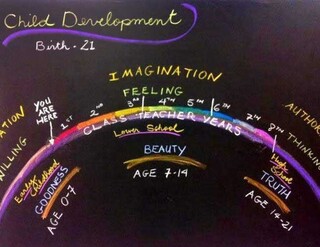 Child Development
Birth - 21
IMAGINATION
FEELING
YOU ARE HERE
1ST 2ND 3RD 4TH 5TH 6TH 7TH 8TH
CLASS TEACHER YEARS
Lower School
BEAUTY
AGE 7-14
ATION
WILLING
Early Childhood
GOODNESS
AGE 0-7
AUTHOR
THINKING
High School
TRUTH
AGE 14-21